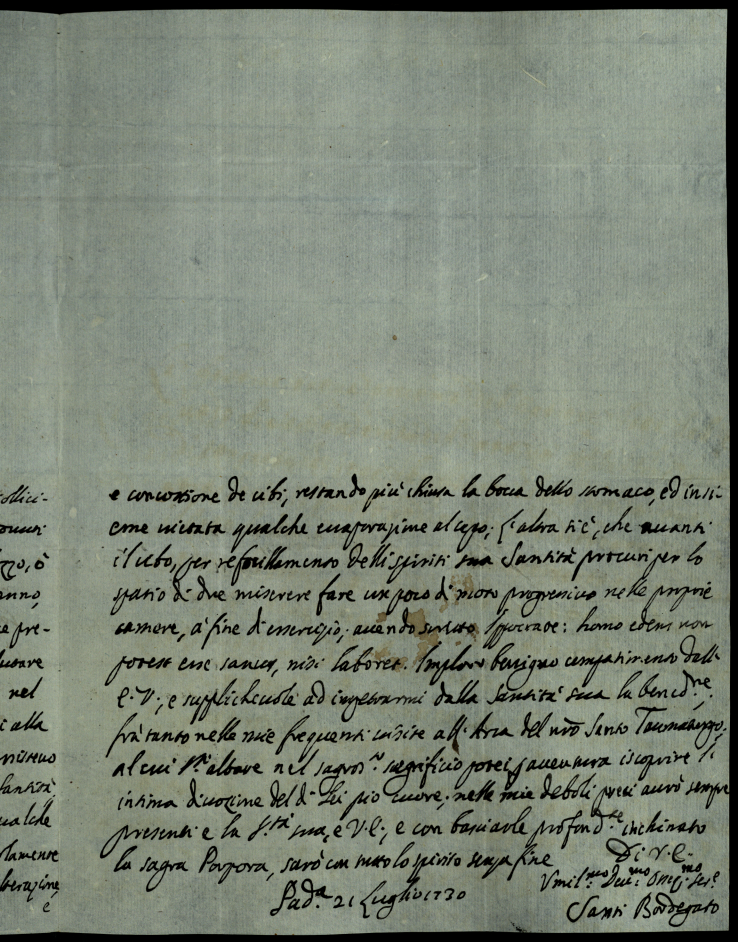 ollici-
ò
anno,
e pre-
nel
i alla
antità,
ualche
lamente
berazione,
e
e concozione de cibi, restando più chiusa la bocca dello stomaco, ed insi-
eme vietata qualche evaporazione al capo; l'altra si è, che avanti
il cibo, per refocillamento delli spiriti sua Santità procuri per lo
spatio di due miserere fare un poco di moto progressivo nelle proprie
camere, à fine d'essercizio, avendo Ippocrate: homo edens non
potest esse sanus, nisi laboret. Imploro benigno compatimento dall'
E. V., e ad impetrarmi dalla Santità sua la bened.ne,
frà tanto nelle mie frequenti visite all'Arca del nro Santo Taumaturgo,
al cui altare nel sagros.o sagrificio potei j'aventura iscoprire l'
intima divozione del di Lei pio cuore, nelle mie deboli preci avrò sempre
presenti e la S.tà sua, e V. E., e con basciarle profond.te inchinato
la sagra Porpora, sarò con tutto lo spirito senza fine
Di V. E.
Pad.a 21 Luglio 1730
Vmil.mo Dev.mo Osseq.mo Ser.e
Santi Bordegato